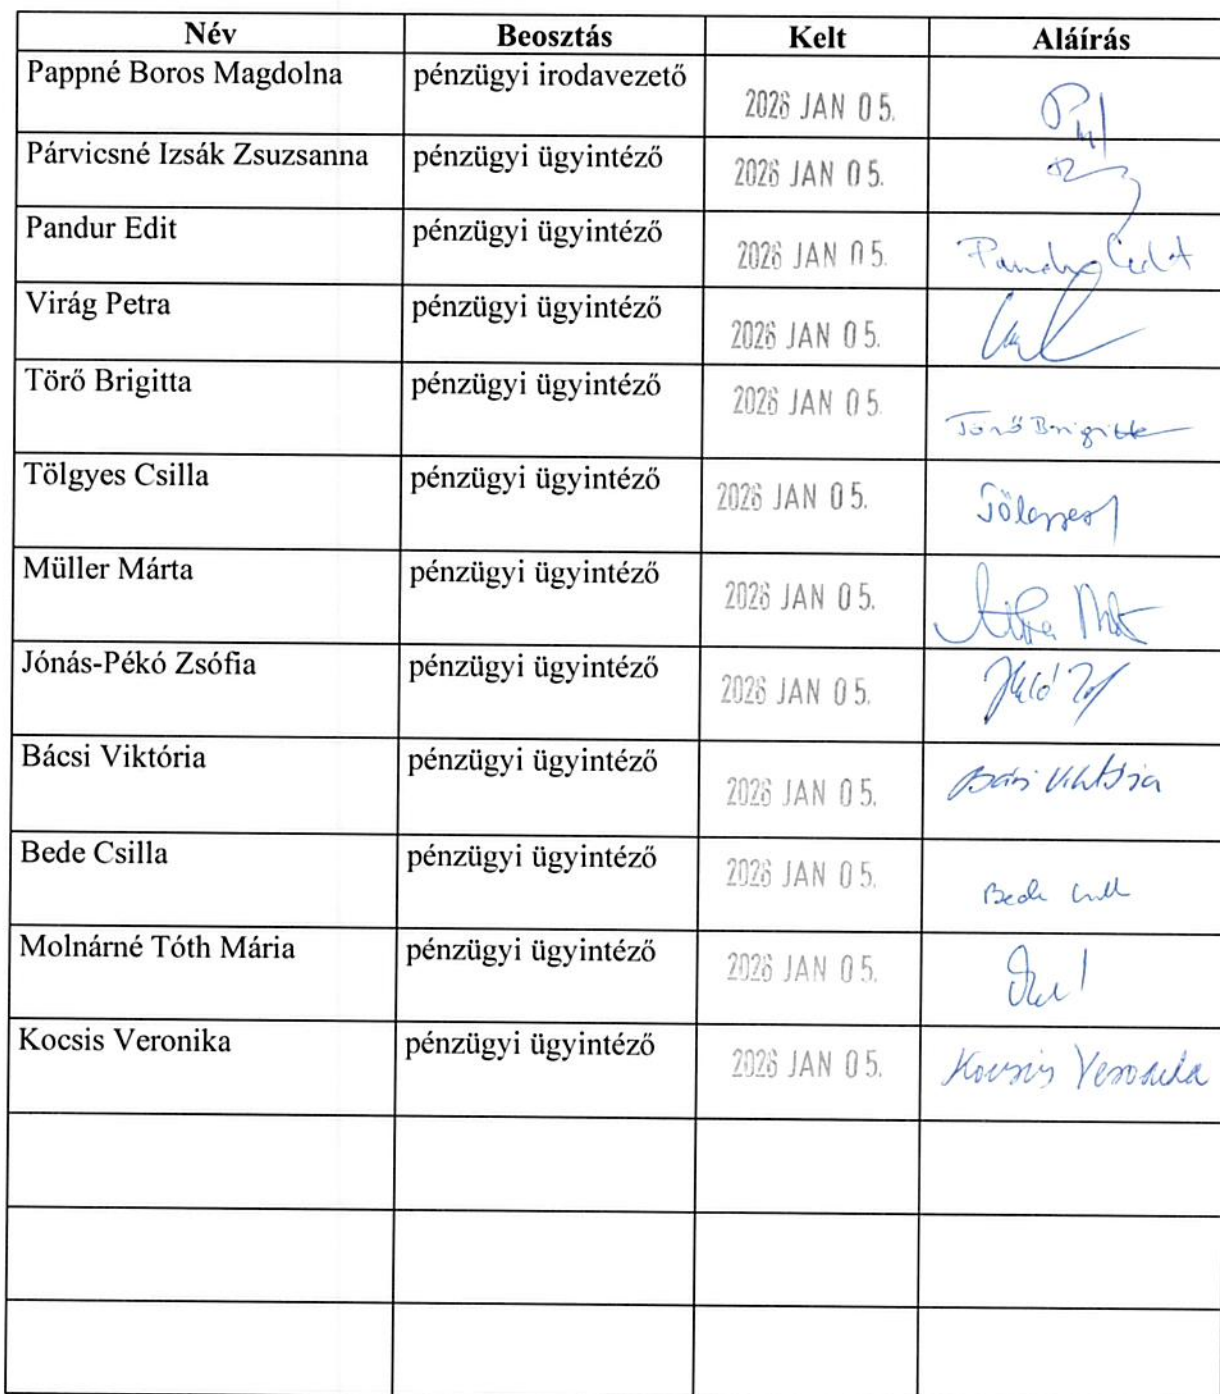 Név Beosztás Kelt Aláírás
Pappné Boros Magdolna pénzügyi irodavezető 2026 JAN 05.
Párvicsné Izsák Zsuzsanna pénzügyi ügyintéző 2026 JAN 05.
Pandur Edit pénzügyi ügyintéző 2026 JAN 05. Pandur Edit
Virág Petra pénzügyi ügyintéző 2026 JAN 05.
Törő Brigitta pénzügyi ügyintéző 2026 JAN 05. Törő Brigitta
Tölgyes Csilla pénzügyi ügyintéző 2026 JAN 05. Tölgyes
Müller Márta pénzügyi ügyintéző 2026 JAN 05.
Jónás-Pékó Zsófia pénzügyi ügyintéző 2026 JAN 05.
Bácsi Viktória pénzügyi ügyintéző 2026 JAN 05. Bácsi Viktória
Bede Csilla pénzügyi ügyintéző 2026 JAN 05. Bede
Molnárné Tóth Mária pénzügyi ügyintéző 2026 JAN 05.
Kocsis Veronika pénzügyi ügyintéző 2026 JAN 05. Kocsis Veronika